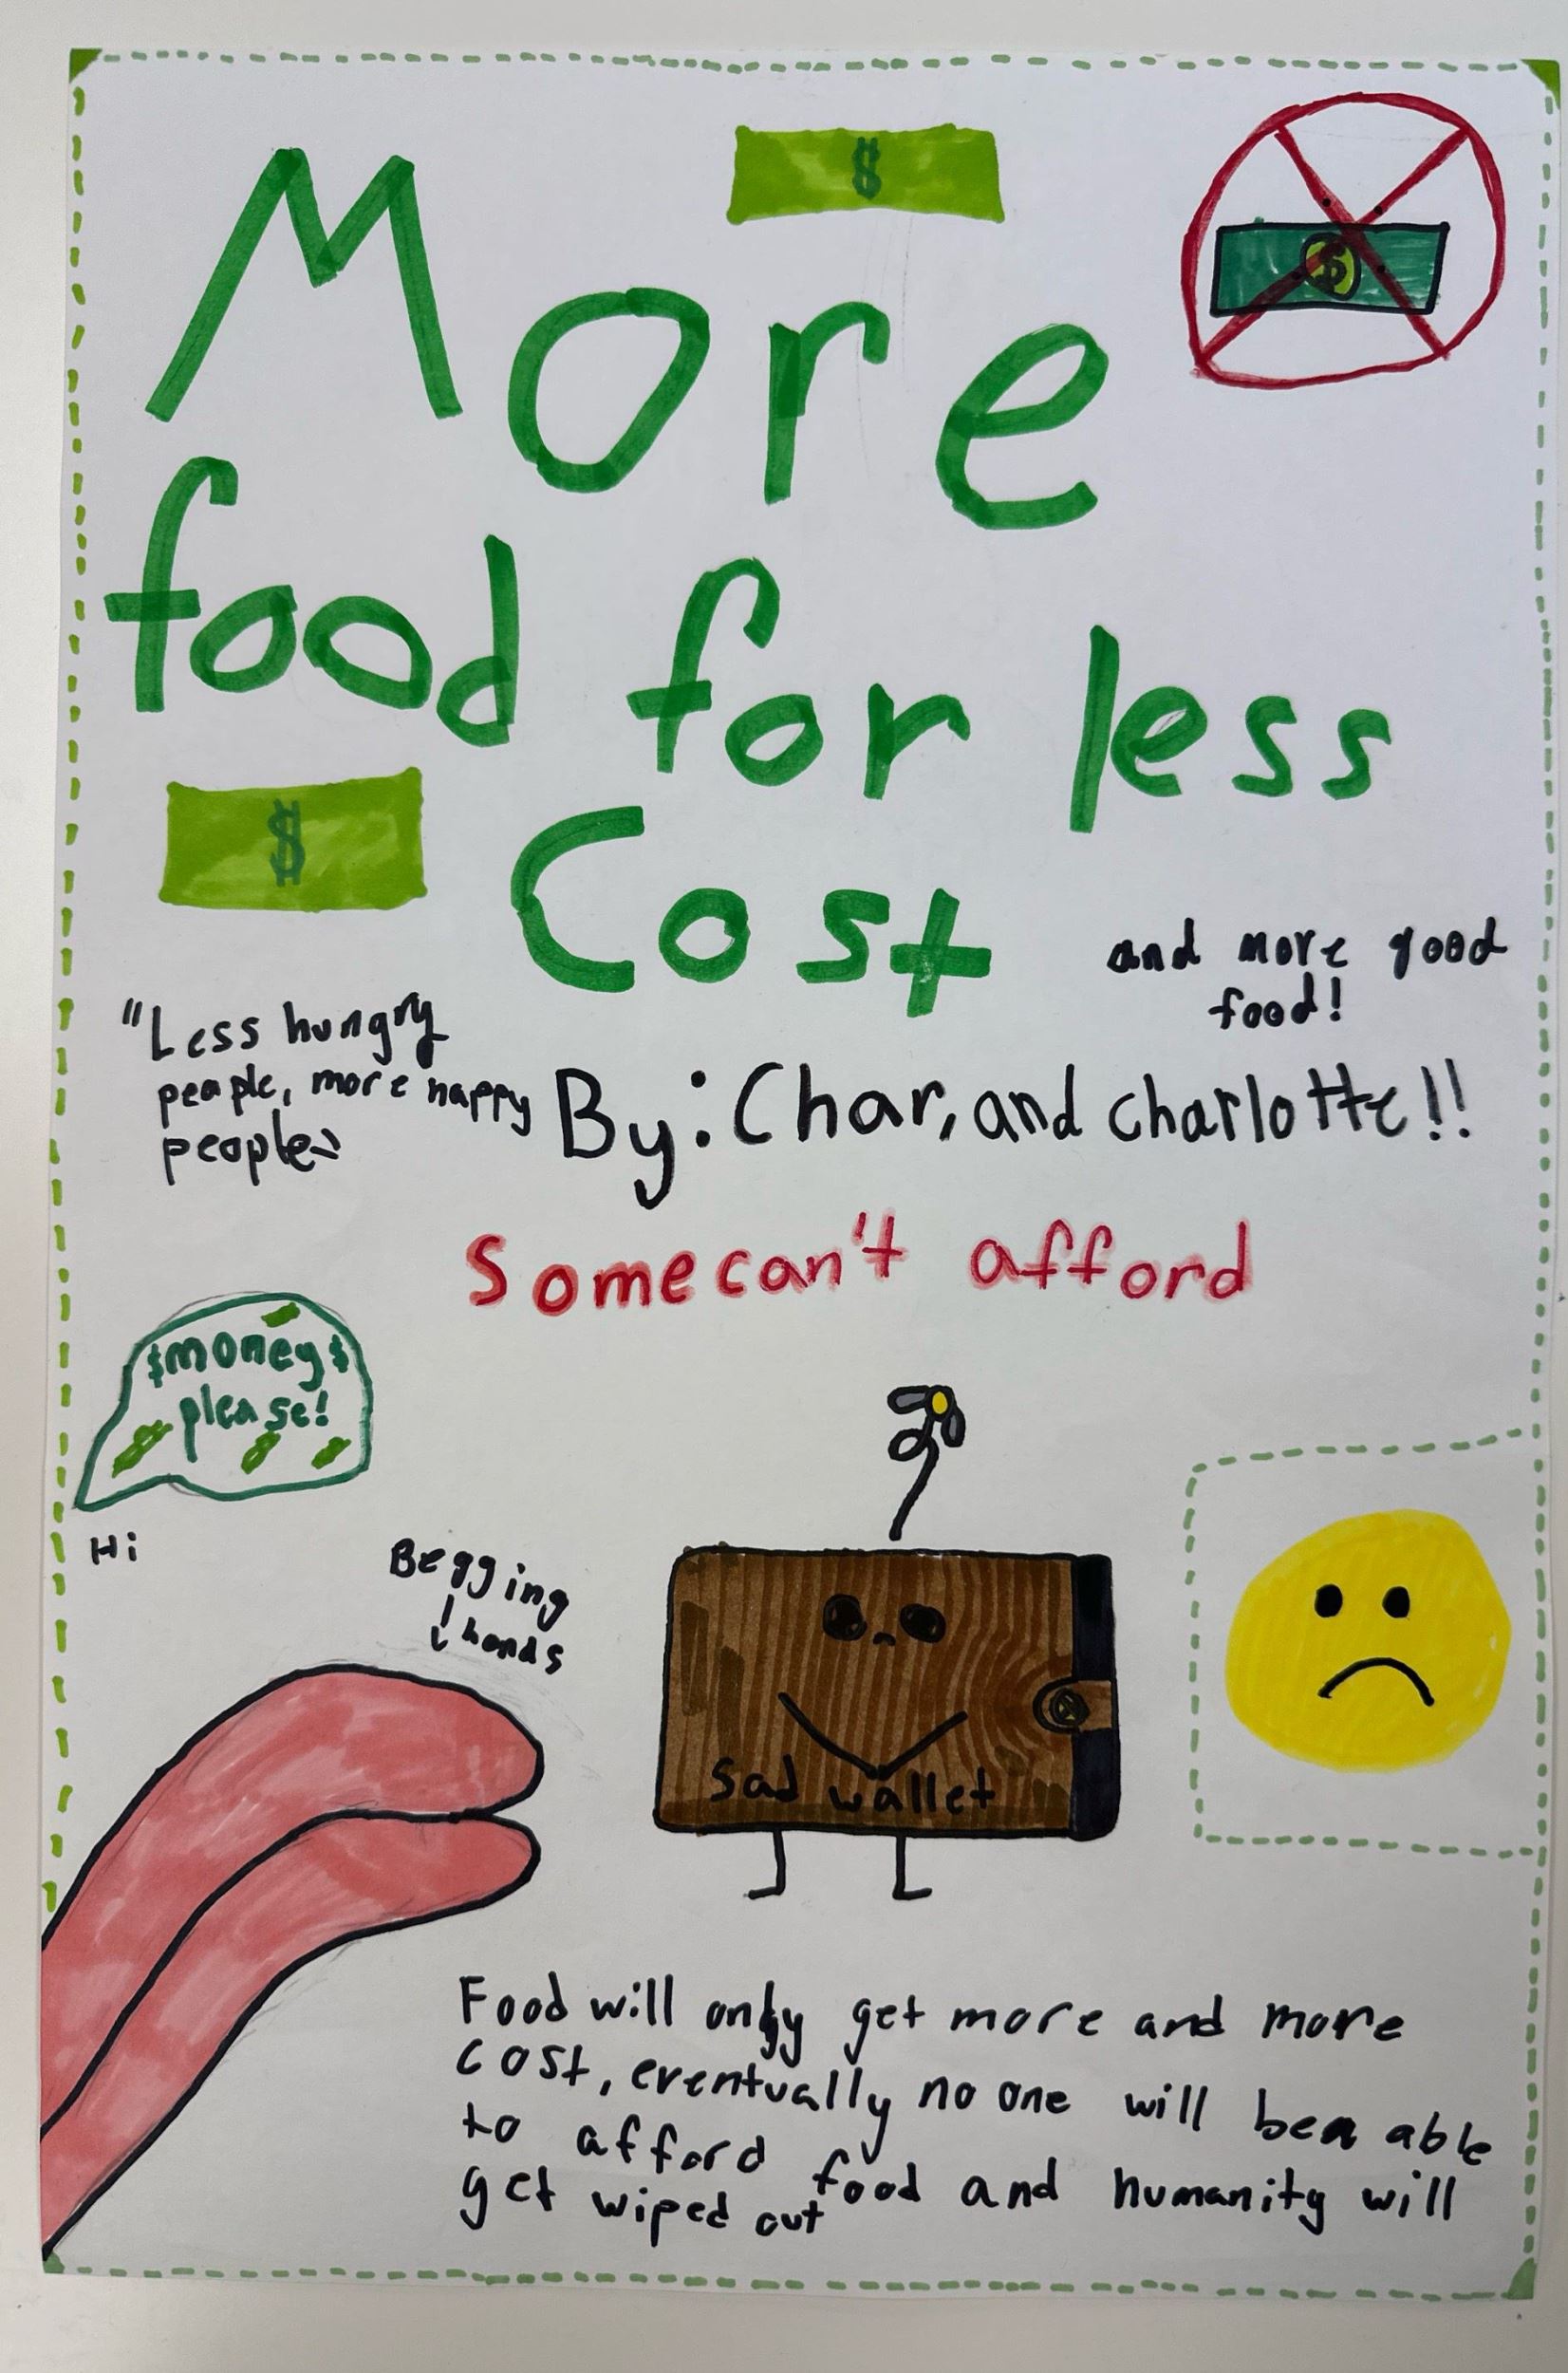 $
$
More
food for less
$
Cost
and more good
food!
"Less hungry
people, more happy
people"
By: Char, and charlotte!!
Some can't afford
$money$
please!
Hi
Begging
hands
sad wallet
Food will only get more and more
cost, eventually no one will be able
to afford food and humanity will
get wiped out